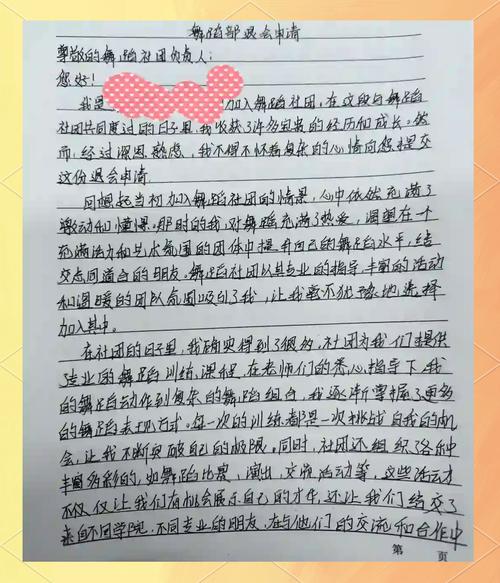 舞蹈部退会申请
尊敬的舞蹈社团负责人：
您好！
我是 加入舞蹈社团，在这段与舞蹈
社团共同度过的日子里，我收获了许多宝贵的经历和成长。然
而，经过深思熟虑，我不得不怀着复杂的心情向您提交
这份退会申请
回想起当初加入舞蹈社团的情景，心中依然充满了
激动和憧憬。那时的我，对舞蹈充满了热爱，渴望在一个
充满活力和艺术氛围的团体中提升自己的舞蹈水平，结
交志同道合的朋友。舞蹈社团以其专业的指导、丰富的活动
和温暖的团队氛围吸引了我，让我毫不犹豫地选择
加入其中。
在社团的日子里，我确实得到了很多，社团为我们提供
专业的舞蹈训练课程，在老师们的悉心指导下，我
的舞蹈动作到复杂的舞蹈组合，我逐渐掌握了更多
的舞蹈表现方式。每一次的训练都是一次挑战自我的机
会，让我不断突破自己的极限。同时，社团还组织了各种
丰富多彩的，如舞蹈比赛，演出，交流活动等，这些活动才
不仅仅让我们有机会展示自己的才华，还让我们结交了
来自不同学院，不同专业的朋友，在与他们的交流和合作中
第 页